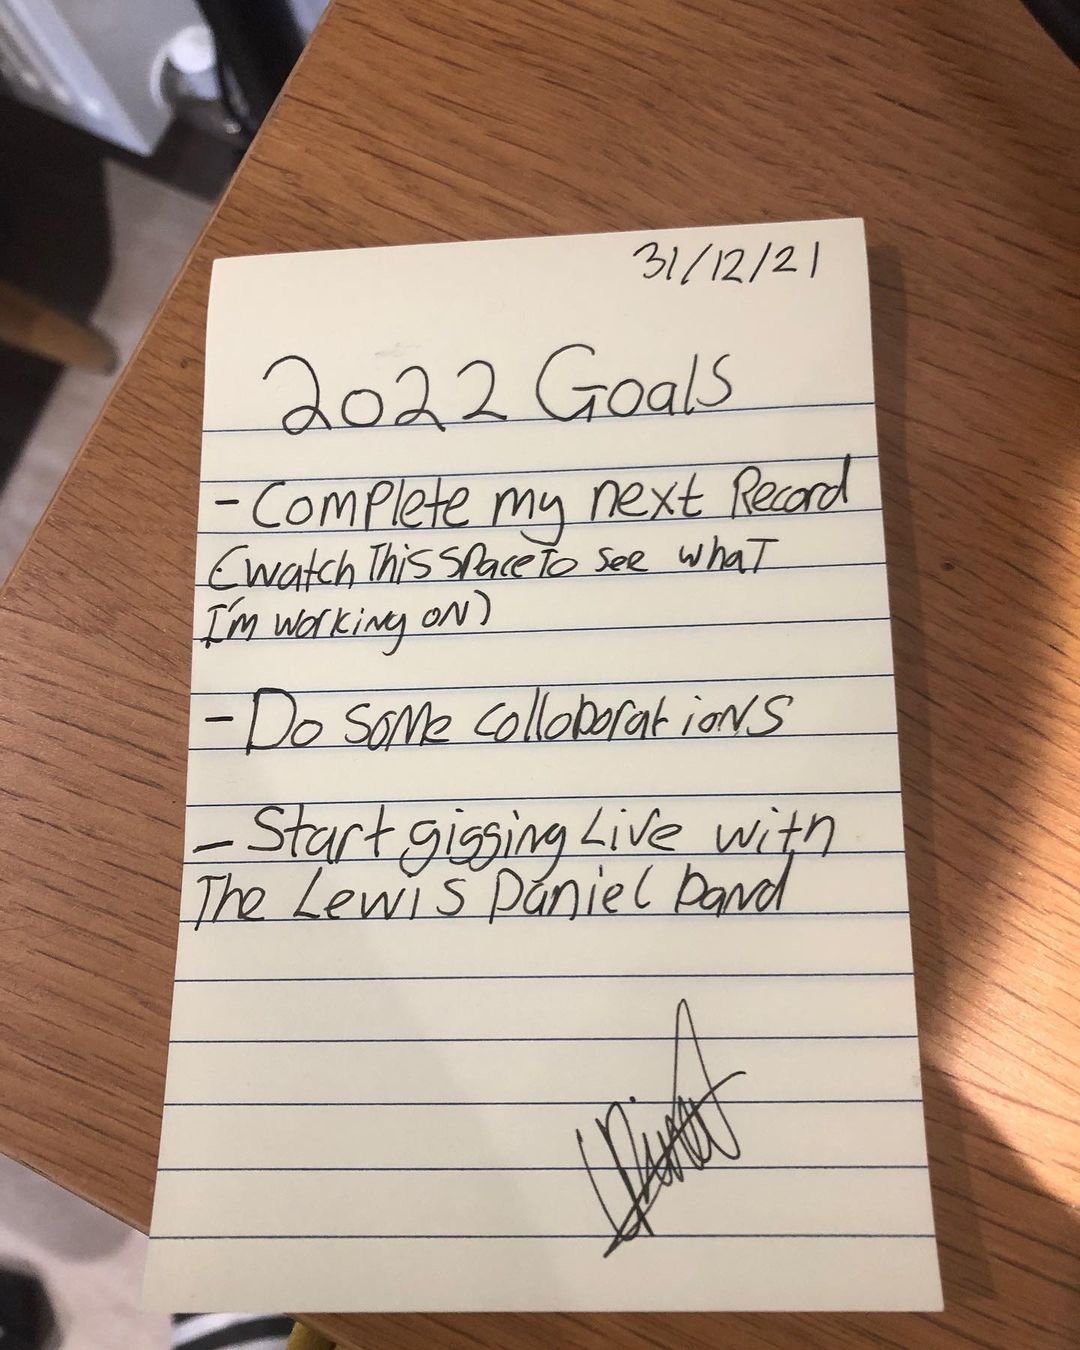 31/12/21
2022 Goals
- Complete my next Record
(watch This space To see what
I'm working on)
- Do some collaborations
- Start gigging Live with
The Lewis Daniel band